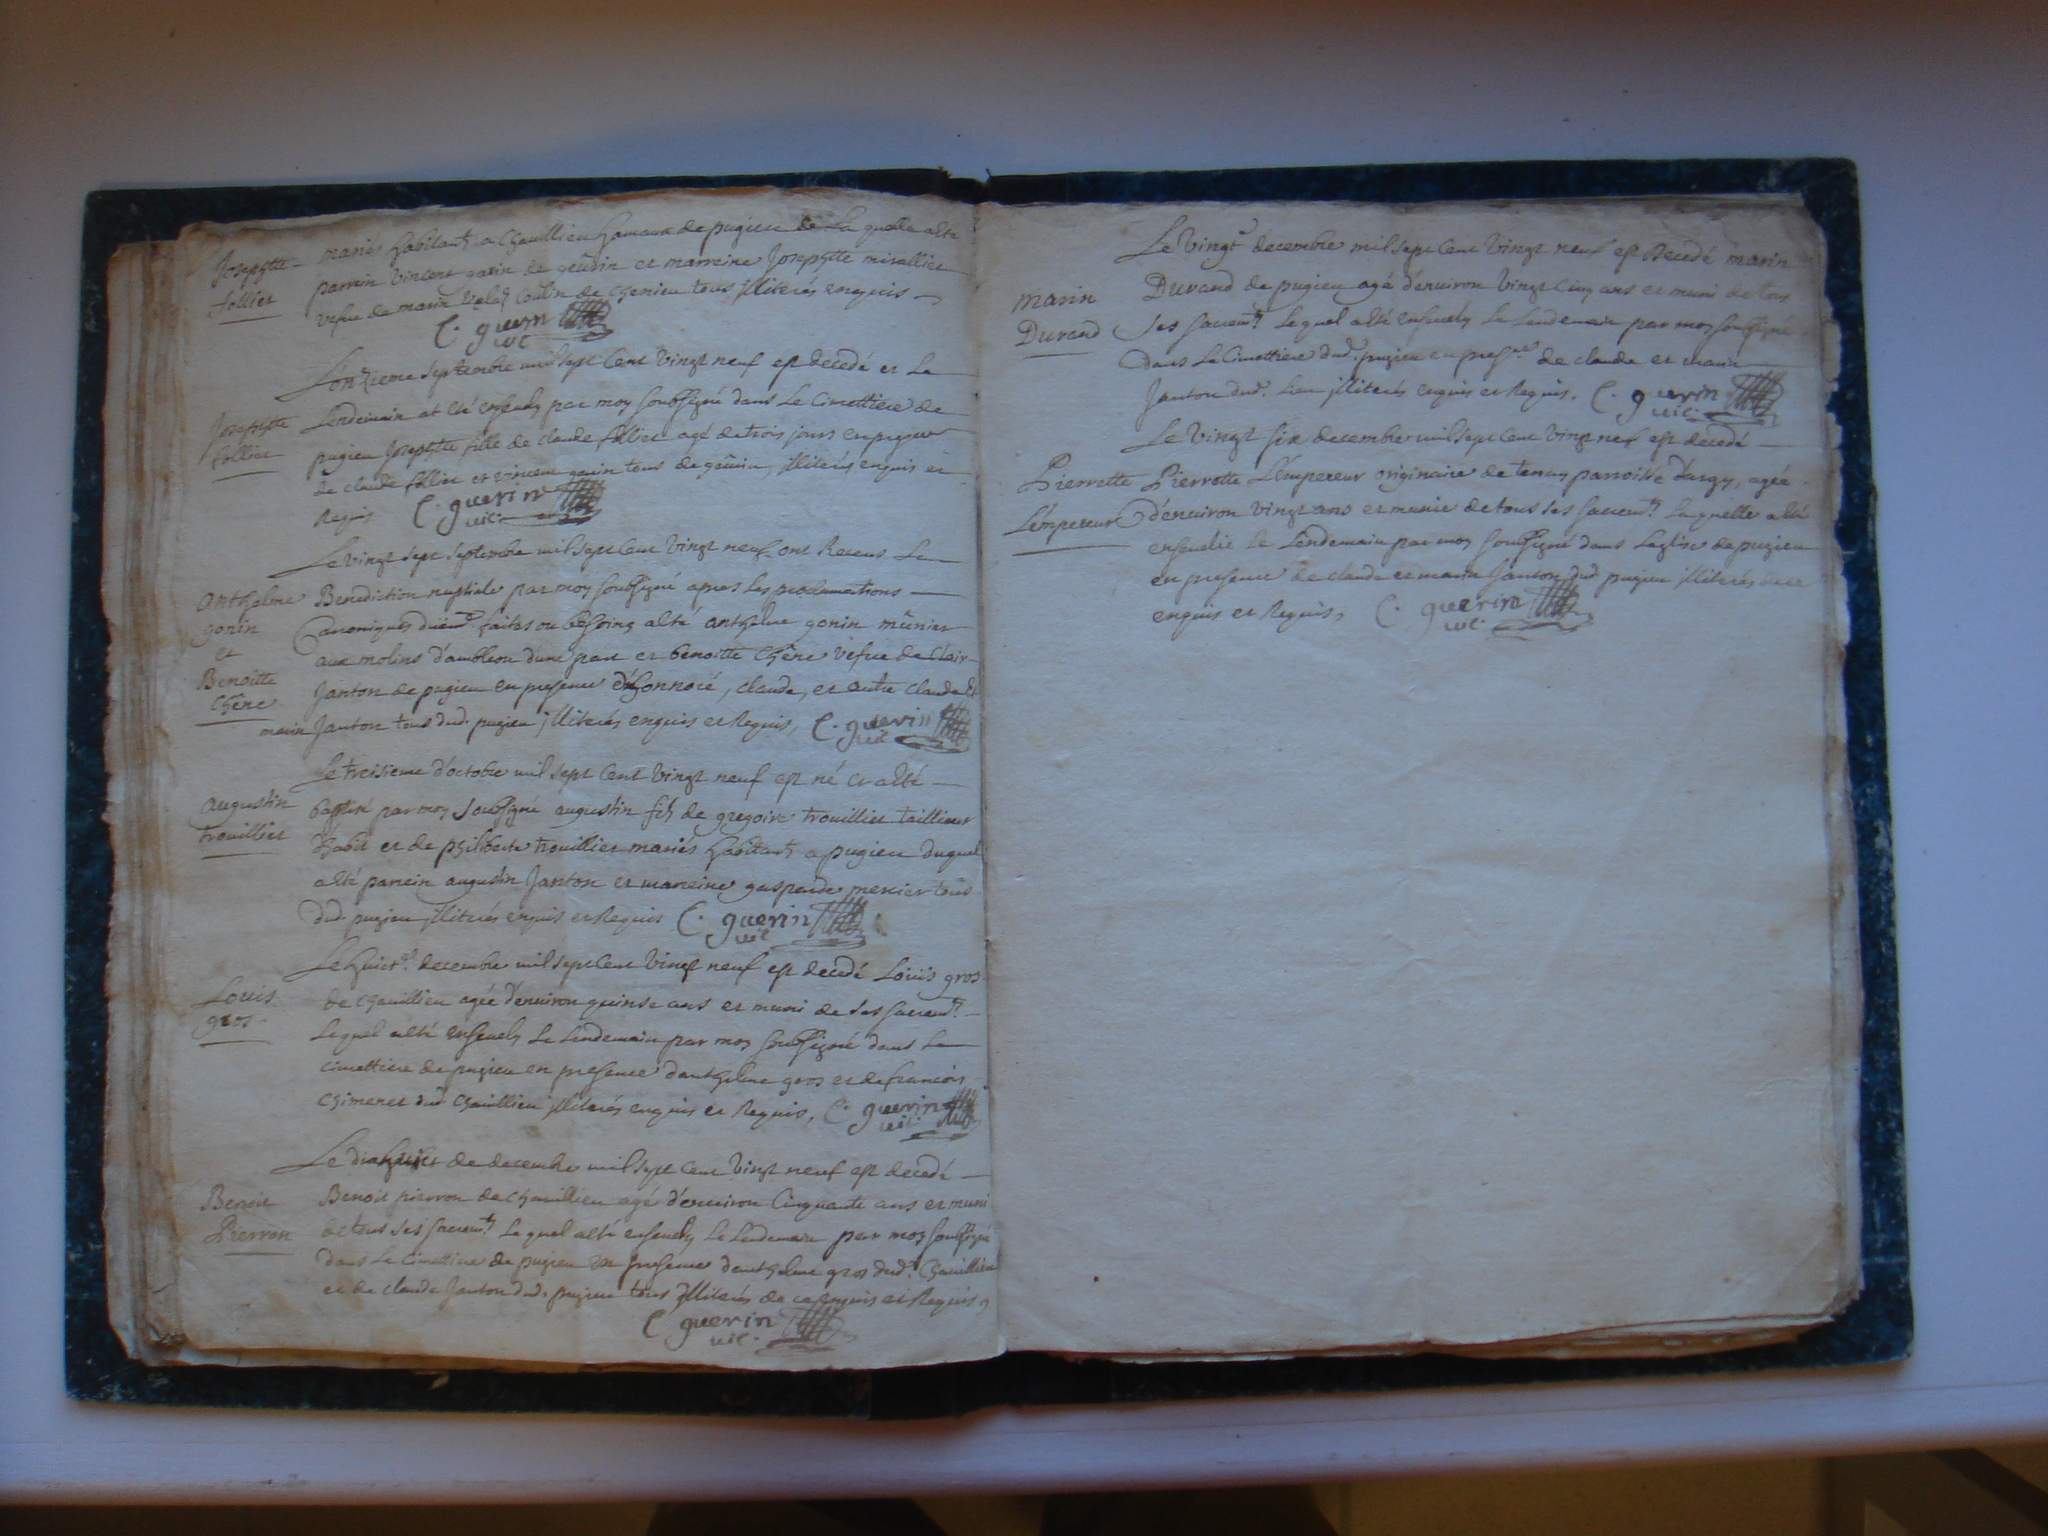 Josephtte
follier
mariés habitants a Chavillieu hameau de pugieu de La quelle a été
parrain Vincent garin de gêuin et marreine Josephtte mirallier
vefve de marin coulin de Chemieu tous jlliterés enquis
C. guerin
vic
L'onzieme septembre mil sept Cent Vingt neuf est decedé et Le
Josephtte
follier
Lendemain at été ensevely par moy soubsigné dans Le Cimettiere de
pugieu Josephtte fille de claude follier agé de trois jours en presence
de claude follier et vincent garin tous de gêuin jlliterés enquis et
Requis C. guerin
vic.
Le vingt sept septembre mil sept Cent Vingt neuf ont Receus La
Anthelme
gonin
et
Benoitte
Chêne
Benediction nuptiale par moy soubsigné apres Les proclamations
Canoniques faites ou besoing a été anthelme gonin mûnier
aux molins d'ambleon d'une part et benoitte Chêne vefve de Clair
Janton de pugieu en presence d'honnoré, claude, et autre claude et
marin Janton tous dud. pugieu jlliterés enquis et Requis, C. guerin
vic
Le treisieme d'octobre mil sept Cent Vingt neuf est né et a été
augustin
trouillier
baptisé par moy soubsigné augustin fils de gregoire trouillier taillieur
d'habit et de philiberte trouillier mariés habitants a pugieu duquel
a été parrein augustin Janton et marreine gasparde mercier tous
dud. pugieu jlliterés enquis et Requis C. guerin
vic
Le huict.e decembre mil sept Cent Vingt neuf est decedé Loüis gros
Louis
gros
de Chavillieu agée d'environ quinse ans et muni de ses sacremts
Lequel a été ensevely Le Lendemain par moy soubsigné dans Le
cimettiere de pugieu en presence d'anthelme gros et de francois
Chimenet dud. Chavillieu jlliterés enquis et Requis, C. guerin
vic.
Le dixhuict de decembre mil sept Cent Vingt neuf est decedé
Benoit
Pierron
Benoit pierron de Chavillieu agé d'environ Cinquante ans et muni
de tous ses sacremts Lequel a été ensevely Le Lendemain par moy soubsigné
dans Le Cimettiere de pugieu en presence d'anthelme gros dud. Chavillieu
et de claude Janton dud. pugieu tous jlliterés de ce enquis et Requis
C guerin
vic.
Le Vingt decembre mil sept Cent Vingt neuf est decedé marin
marin
Durand
Durand de pugieu agé d'environ Vingt Cinq ans et muni de tous
ses sacremts Lequel a été ensevely Le Lendemain par moy soubsigné
dans Le Cimettiere dud. pugieu en presce de claude et marin
Janton dud. Lieu jlliterés enquis et Requis. C. guerin
vic.
Le Vingt six decembre mil sept Cent Vingt neuf est decedé
Pierrette
L'empereur
Pierrotte L'empereur originaire de parroisse d'argy, agée
d'environ Vingt ans et munie de tous ses sacremts Laquelle a été
ensevelie Le Lendemain par moy soubsigné dans L'eglise de pugieu
en presence de claude et marin Janton dud. pugieu jlliterés
enquis et Requis, C. guerin
vic.